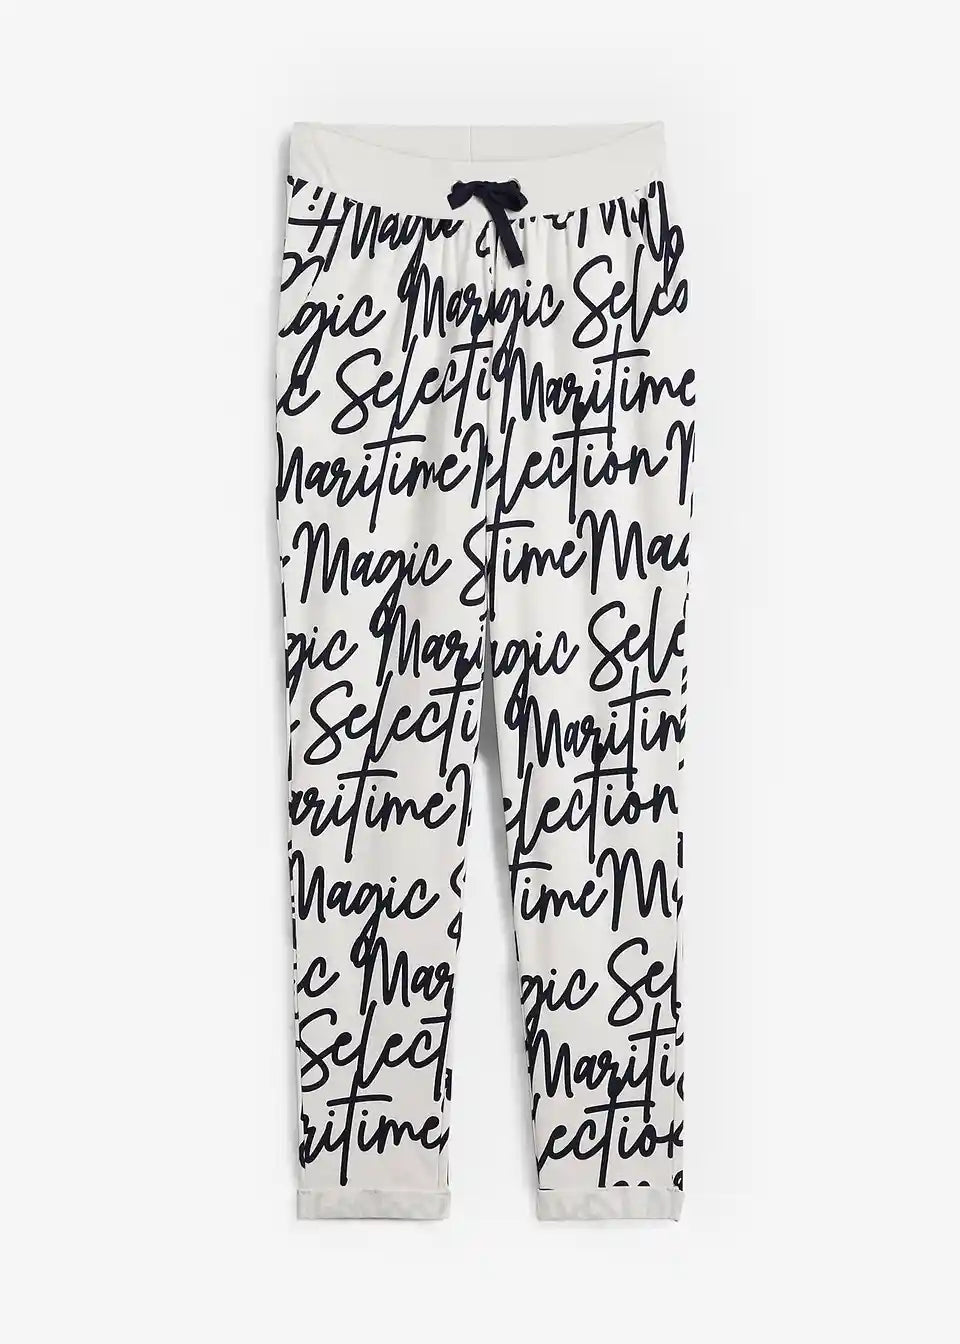 Magic
gic Mar gic Selec
c Selecti Maritime
Maritime lection M
Magic S time Mag
gic Mari agic Sele
Selecti Maritim
aritime election
Magic S time Ma
c Mar gic Sel
Select Mariti
ritime ection